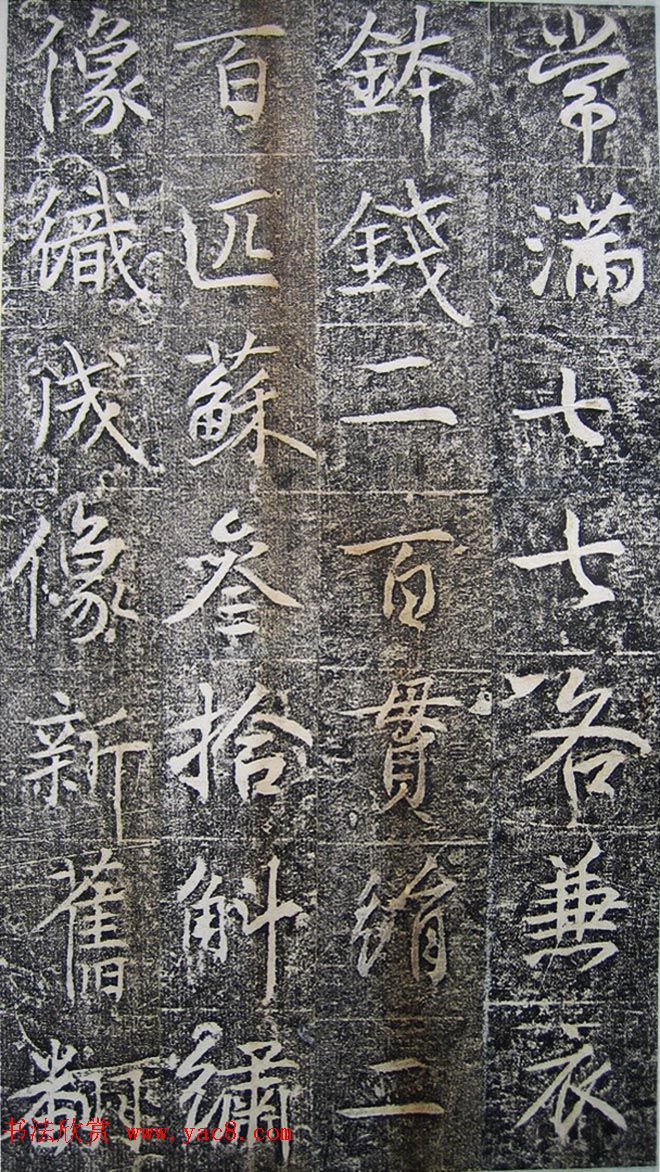 常滿七七各兼衣
鉢錢二百貫絹二
百匹蘇叁拾斛繡
像織成像新舊
书法欣赏 www.yac8.com